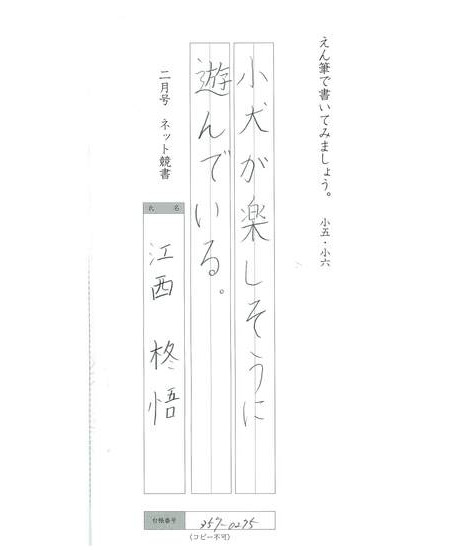 えん筆で書いてみましょう。 小五・小六
小犬が楽しそうに
遊んでいる。
二月号 ネット競書
氏名
江西 柊悟
台帳番号
357-0275
(コピー不可)